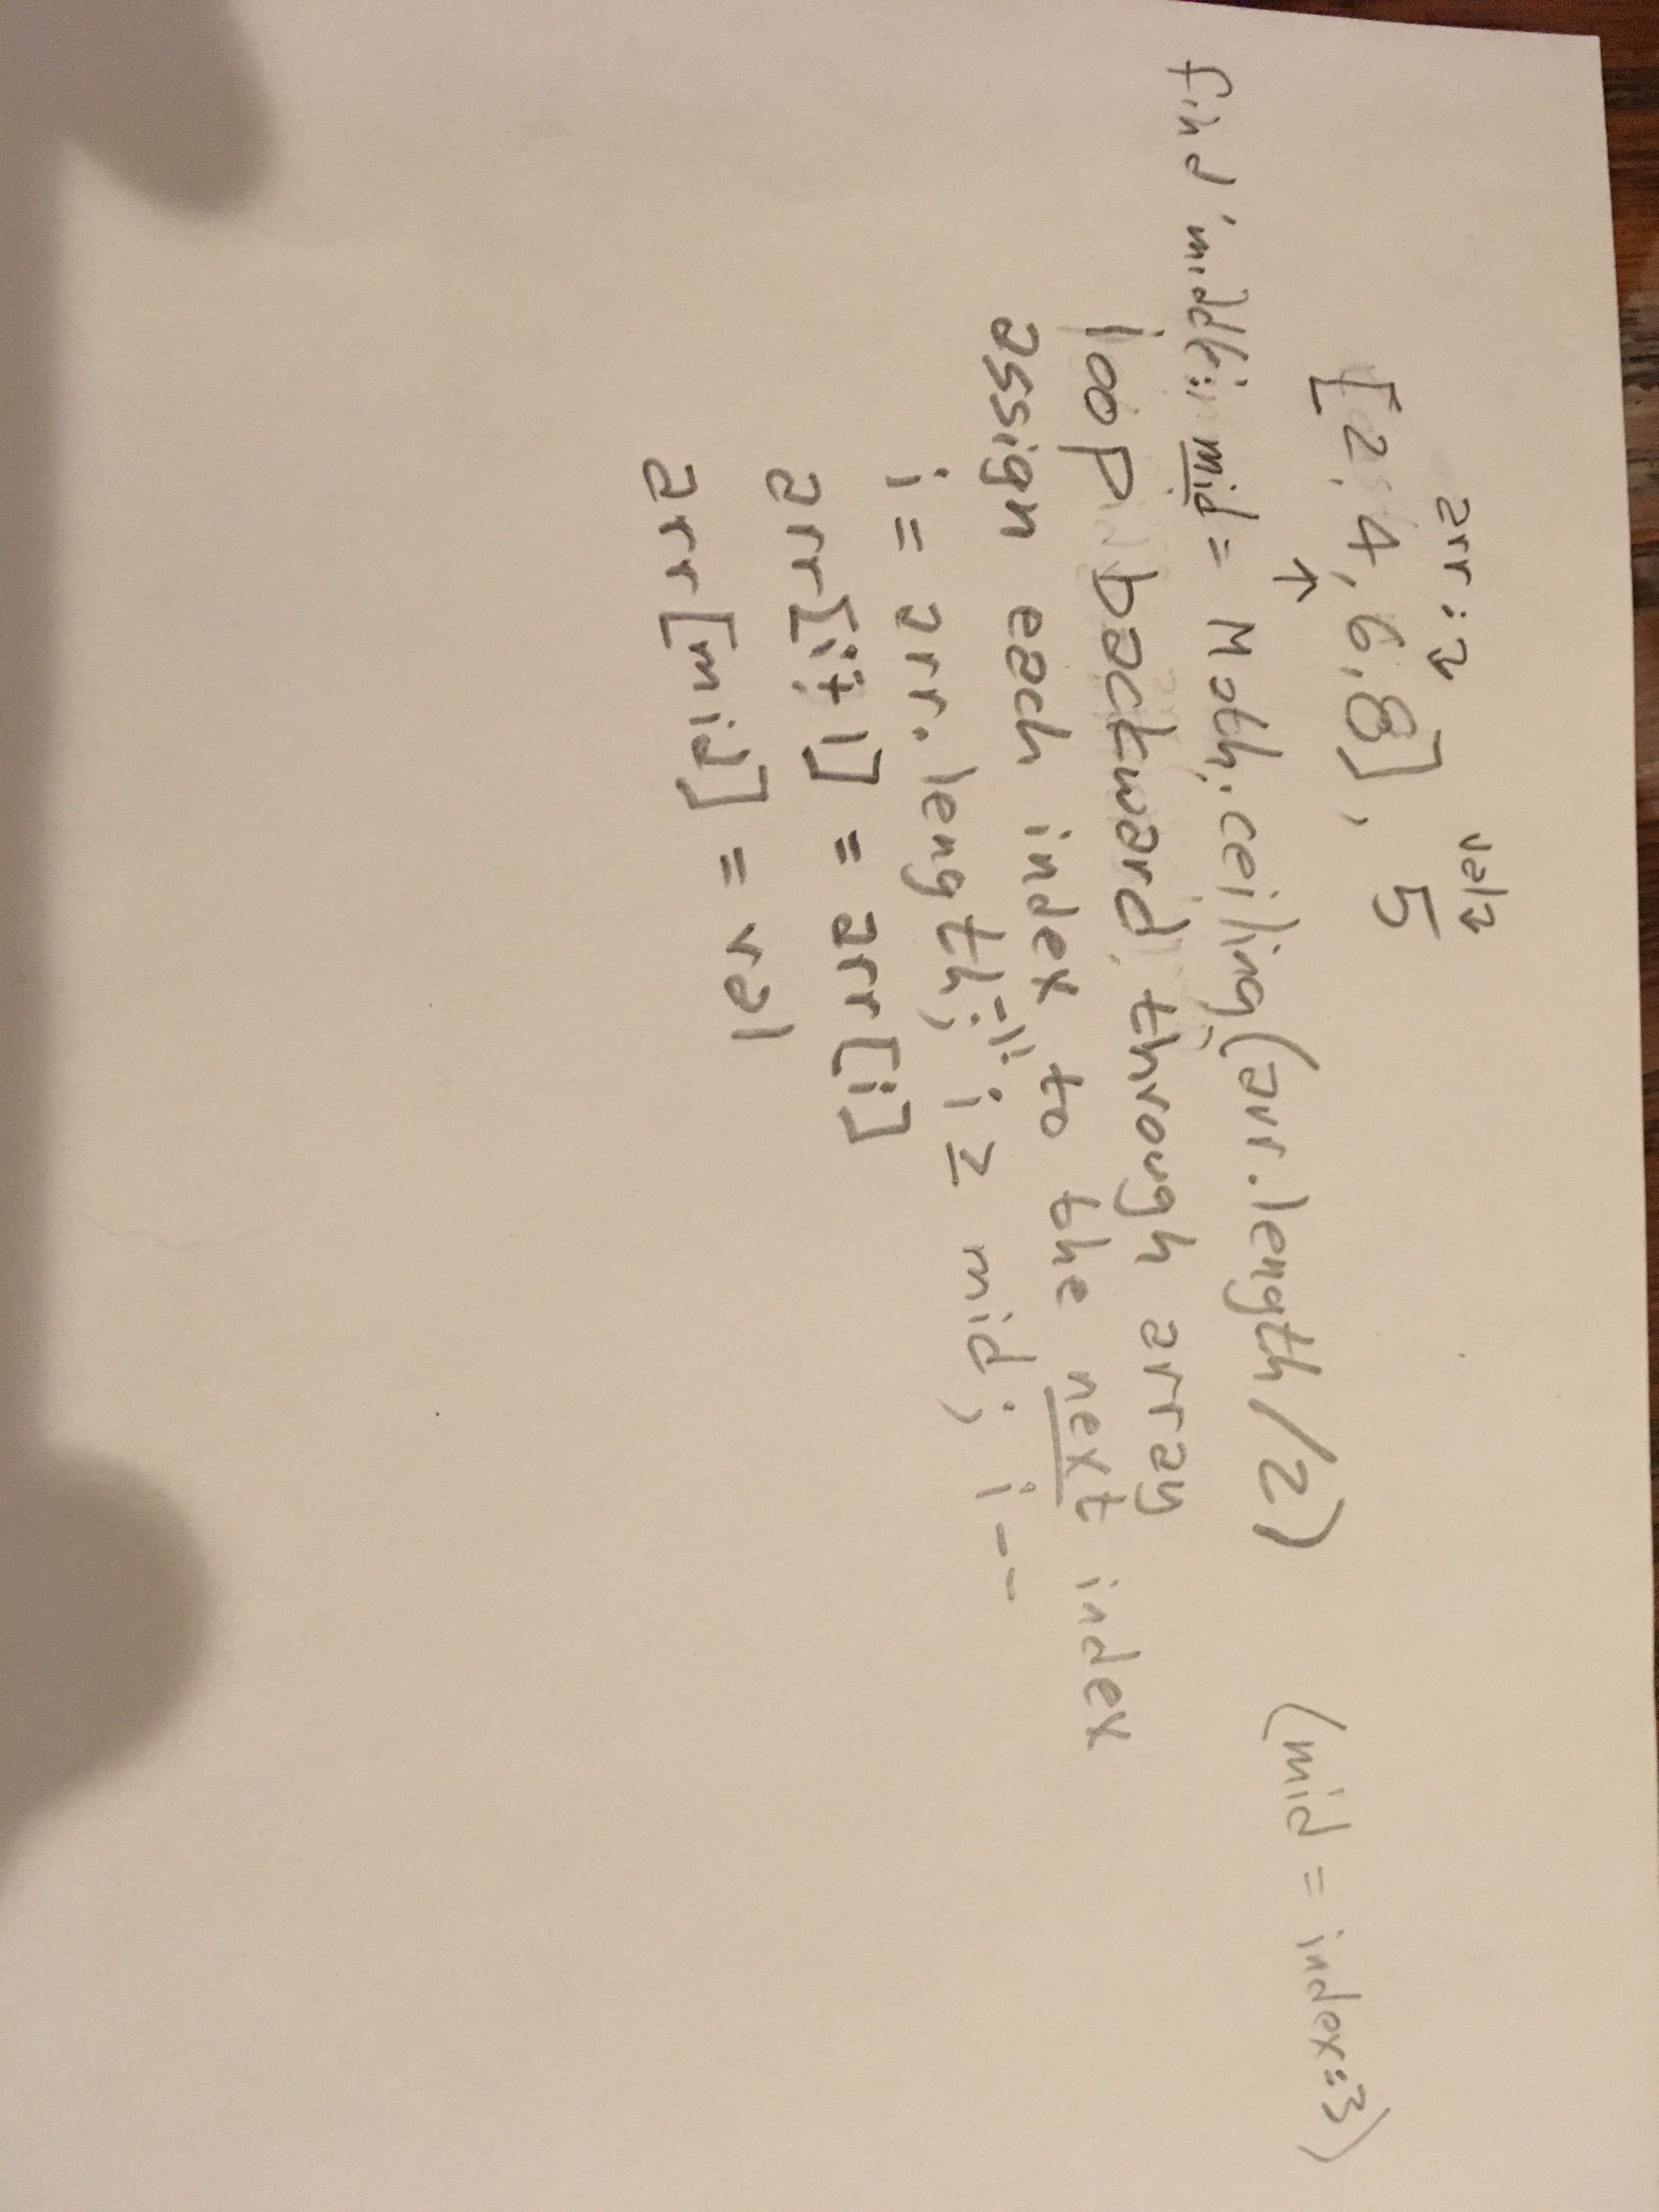 arr: ↴ val ↴
[2, 4, 6, 8], 5
↑
find middle: mid = Math.ceiling(arr.length/2) (mid = index:3)
loop backward through array
assign each index to the next index
i = arr.length-1; i ≥ mid; i--
arr[i+1] = arr[i]
arr[mid] = val